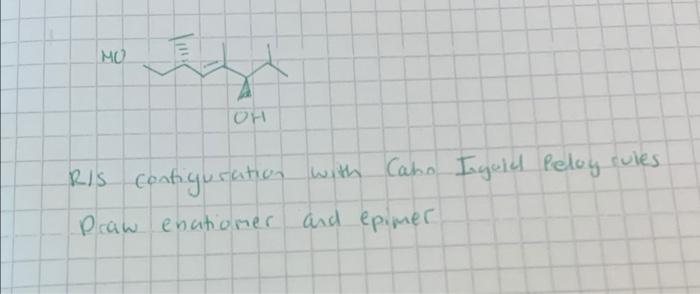 MO
OH
R/S configuration with Cahn Ingold Peloy rules
Draw enationer and epimer